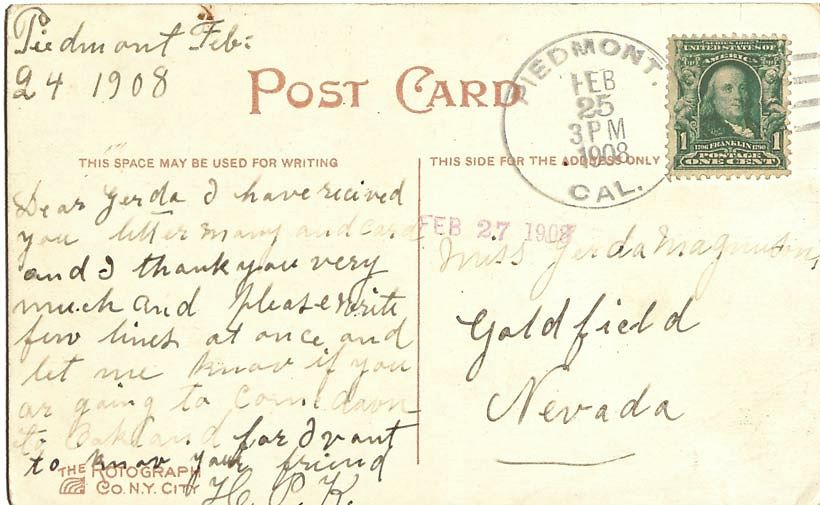 Piedmont Feb:
24 1908
POST CARD
PIEDMONT.
FEB
25
3 PM
1908
CAL.
SERIES 1902
UNITED STATES OF
AMERICA
1 1
1706 FRANKLIN 1790
POSTAGE
ONE CENT
THIS SPACE MAY BE USED FOR WRITING
THIS SIDE FOR THE ADDRESS ONLY
Dear Gerda I have recived
you letter many and card
and I thank you very
much and please write
few lines at once and
let me know if you
ar going to Com down
to Oakland for I vant
to know your friend
H. P. K.
FEB 27 1908
Miss Gerda Magnuson,
Goldfield
Nevada
THE ROTOGRAPH
CO. N.Y. CITY